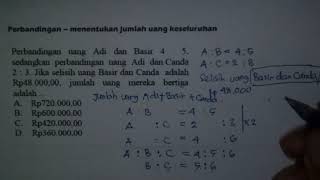 Perbandingan – menentukan jumlah uang keseluruhan
Perbandingan uang Adi dan Basir 4 : 5,
sedangkan perbandingan uang Adi dan Canda
2 : 3. Jika selisih uang Basir dan Canda adalah
Rp48.000,00, jumlah uang mereka bertiga
adalah
A. Rp720.000,00
B. Rp600.000,00
C. Rp420.000,00
D. Rp360.000,00
A : B = 4 : 5
A : C = 2 : 3
Selisih uang Basir dan Canda
Rp 48.000
Jumlah uang Adi + Basir + Canda
A : B = 4 : 5
A : C = 2 : 3 | x2
A : C = 4 : 6
A : B : C = 4 : 5 : 6
B : C = 5 : 6